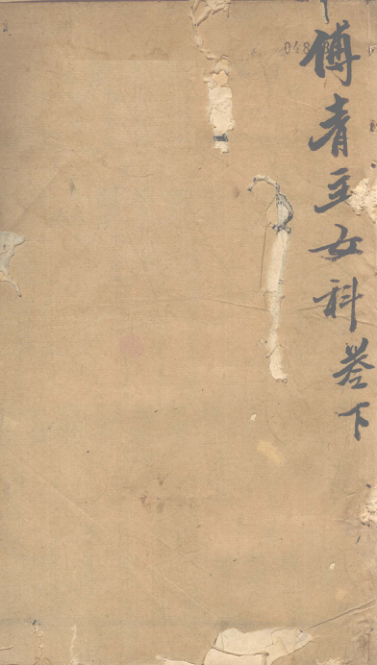 傅青主女科卷下
048